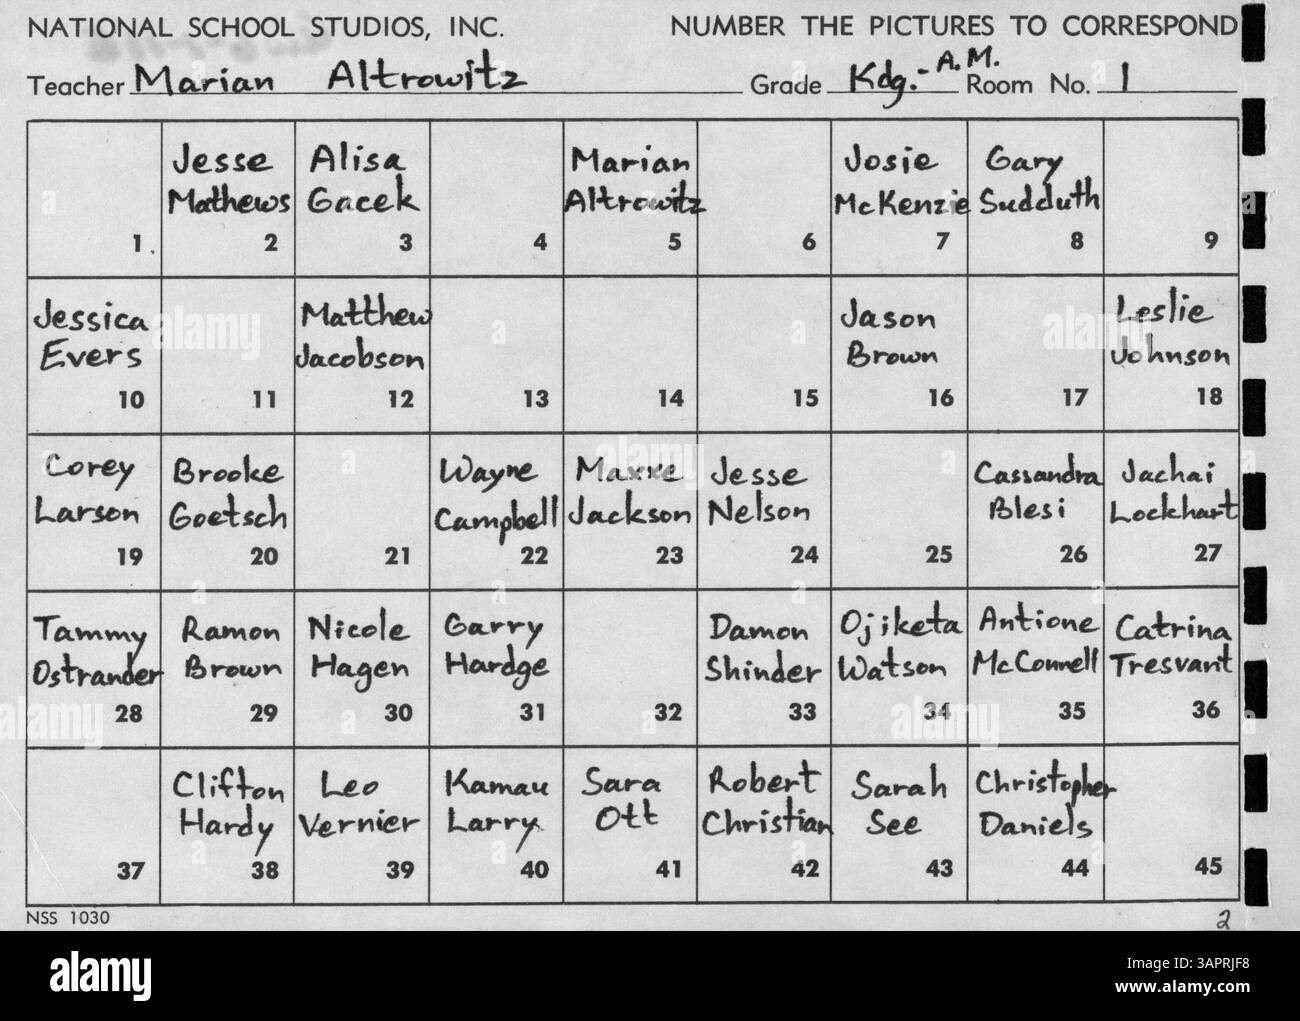 NATIONAL SCHOOL STUDIOS, INC. NUMBER THE PICTURES TO CORRESPOND
Teacher Marian Altrowitz Grade Kdg.- A.M. Room No. 1
Jesse Mathews Alisa Gacek Marian Altrowitz Josie McKenzie Gary Sudduth
1 2 3 4 5 6 7 8 9
Jessica Evers Matthew Jacobson Jason Brown Leslie Johnson
10 11 12 13 14 15 16 17 18
Corey Larson Brooke Goetsch Wayne Campbell Maxxe Jackson Jesse Nelson Cassandra Blesi Jachai Lockhart
19 20 21 22 23 24 25 26 27
Tammy Ostrander Ramon Brown Nicole Hagen Garry Hardge Damon Shinder Ojiketa Watson Antione McConnell Catrina Tresvant
28 29 30 31 32 33 34 35 36
Clifton Hardy Leo Vernier Kamau Larry Sara Ott Robert Christian Sarah See Christopher Daniels
37 38 39 40 41 42 43 44 45
NSS 1030 2
alamy
Image ID: 3APRJF8
www.alamy.com